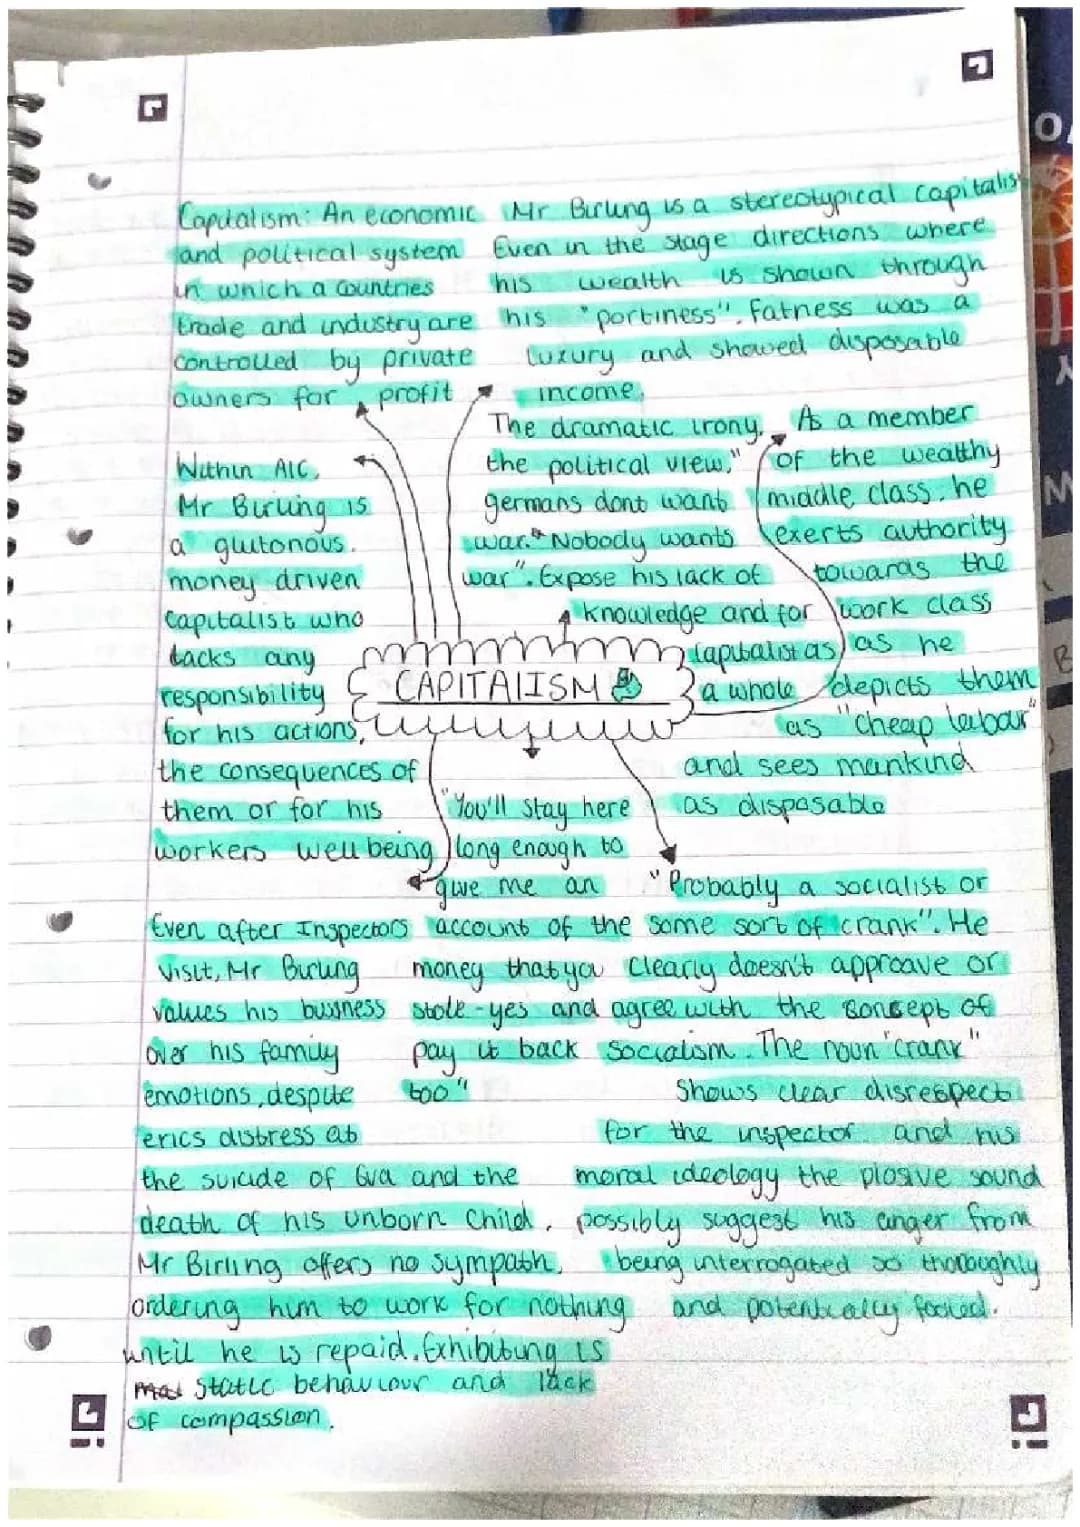 Capitalism: An economic
and political system
in which a countries
trade and industry are
controlled by private
owners for profit
Mr Birling is a stereotypical capitalis
Even in the stage directions where
his wealth is shown through
his "portiness". Fatness was a
luxury and showed disposable
income.
Within AIC,
Mr Birling is
a glutonous.
money driven
capitalist who
lacks any
responsibility
for his actions,
the consequences of
them or for his
workers well being
The dramatic irony,
the political view,"
germans dont want
war." "Nobody wants
war". Expose his lack of
knowledge and for
capitalist as
a whole
As a member
of the wealthy
middle class. he
exerts authority
towards the
work class
as he
depicts them
as "cheap labour"
and sees mankind
as disposable
CAPITALISM
Even after Inspectors
visit, Mr Birling
values his business
over his family
emotions, despite
erics distress at
the suicide of Eva and the
death of his unborn child.
Mr Birling offers no sympath,
ordering him to work for nothing
until he is repaid. Exhibiting is
static behaviour and lack
of compassion.
"You'll stay here
long enough to
give me an
account of the
money that you
stole - yes and
pay it back
too"
"Probably a socialist or
some sort of crank". He
clearly doesn't approave or
agree with the concept of
socialism. The noun "crank"
shows clear disrespect
for the inspector and his
moral ideology the plosive sound
possibly suggest his anger from
being interrogated so thoroughly
and potentically fooled.